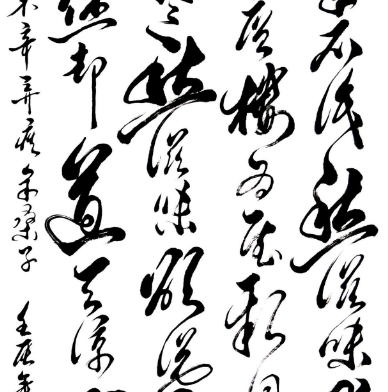 不识愁滋味
层楼为赋新
尽愁滋味欲说
却道天凉
辛弃疾采桑子 壬辰年